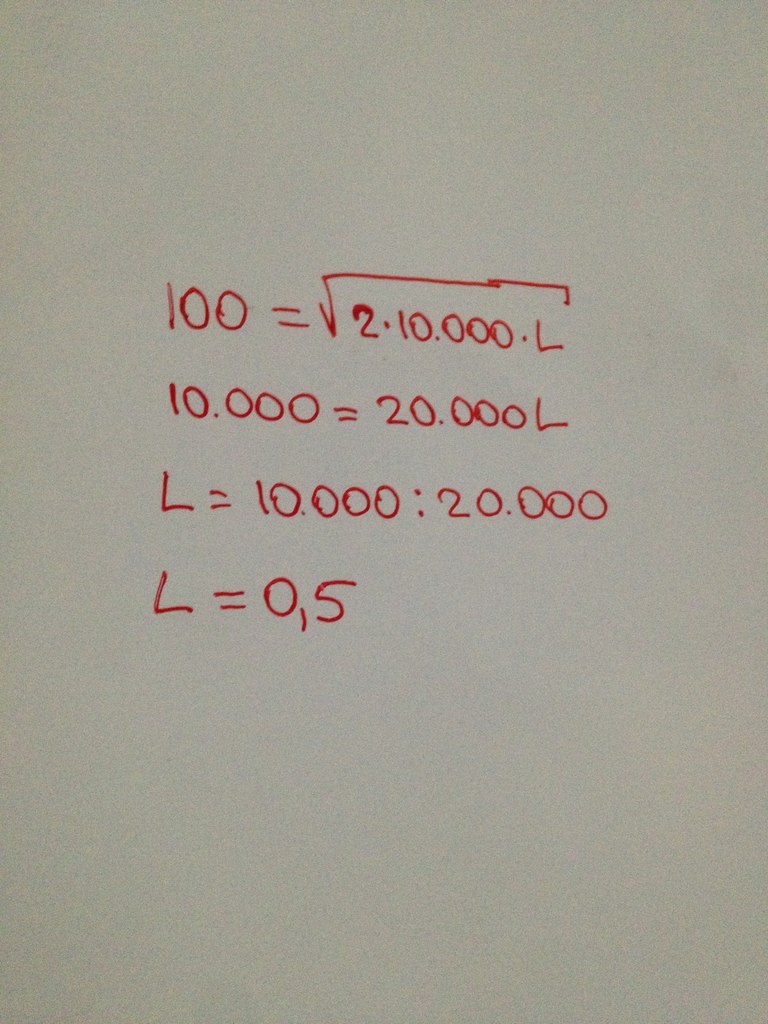 100 = √2·10.000·L
10.000 = 20.000L
L = 10.000 : 20.000
L = 0,5